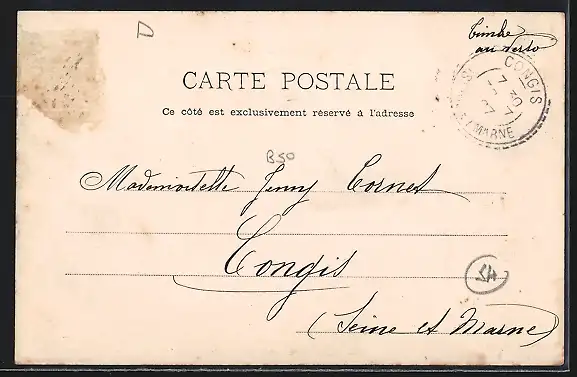 D
Timbre
au verso
CONGIS
7 30
MARNE
CARTE POSTALE
Ce côté est exclusivement réservé à l'adresse
B50
Mademoiselle Jenny Cornet
Congis
(Seine et Marne)